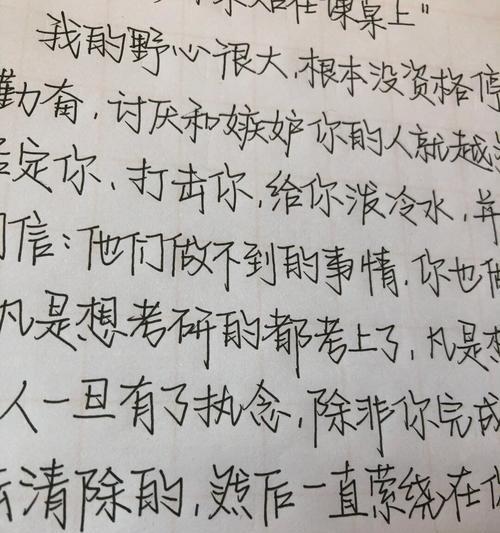 在课桌上"
我的野心很大,根本没资格停
勤奋,讨厌和嫉妒你的人就越
定你,打击你,给你泼冷水,并
信:他们做不到的事情,你也做
凡是想考研的都考上了,凡是想
人一旦有了执念,除非你完成
清除的,然后一直萦绕在你